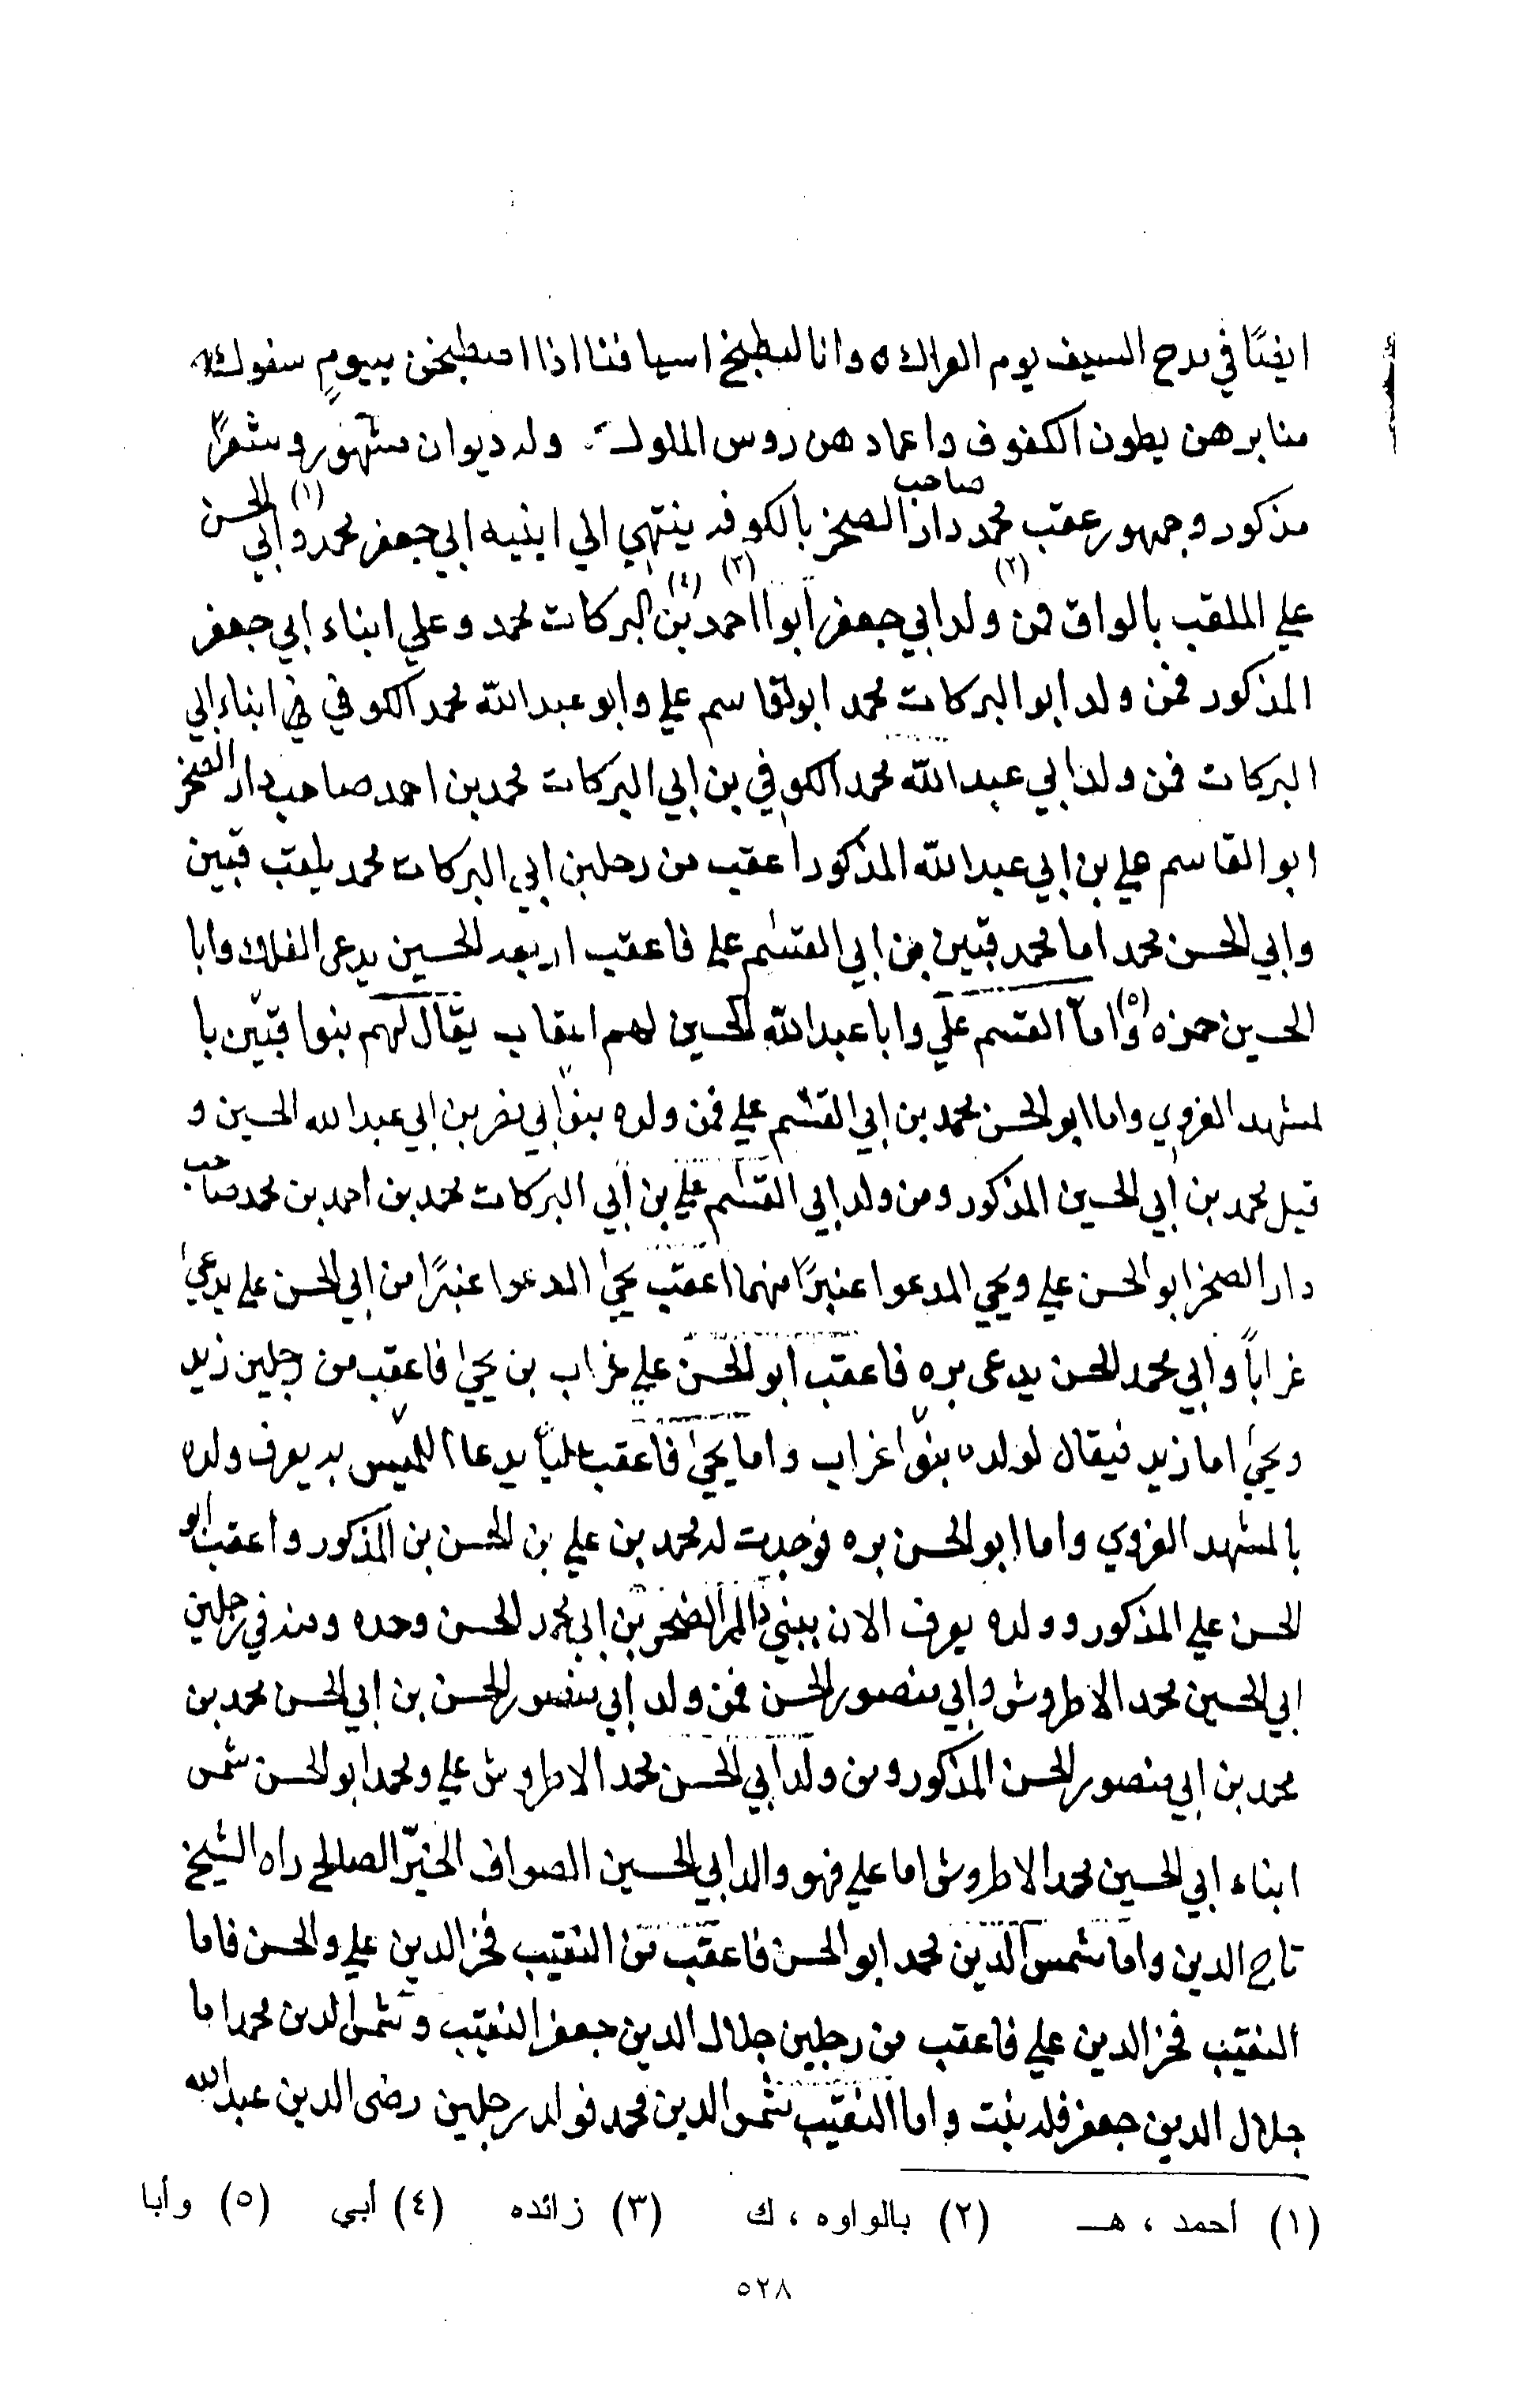 ايضًا في مدح السيف يوم العراك ٥ وانا لتطبخ اسيافنا اذا اصطبخن بيومٍ سفوك
منابرهن بطون الكفوف واغماد هن روس الملوك ولد ديوان مشهور وشعرٌ
مذكور وجمهور عقب محمد صاحب دار الصخر بالكوفه ينتهي الي ابنيه ابي جعفر محمد (١) وابي الحسن
علي الملقب بالواق (٢) فمن ولد ابي جعفر ابوا احمد (٣) بن (٤) البركات محمد وعلي ابناء ابي جعفر
المذكور فمن ولد ابو البركات محمد ابولقاسم علي وابو عبد الله محمد الكوفي في ابناء ابي
البركات فمن ولد ابي عبد الله محمد الكوفي بن ابي البركات محمد بن احمد صاحب دار الصخر
ابو القاسم علي بن ابي عبد الله المذكور اعقب من رجلين ابي البركات محمد يلقب قبين
وابي الحسن محمد اما محمد قبين بن ابي القسم علي فاعقب اربعه الحسين يدعى الفلك وابا
الحسين حمزه (٥) واما القسم علي وابا عبد الله الحسين لهم اعقاب يقال لهم بنوا قبّين با
لمشهد الغروي واما ابو الحسن محمد بن ابي القسم علي فمن ولده بنوا بي نصر بن ابي عبد الله الحسين و
قيل محمد بن ابي الحسين المذكور ومن ولد ابي القسم علي بن ابي البركات محمد بن احمد بن محمد صاحب
دار الصخر ابو الحسن علي ويحيي المدعوا عنبرًا منهما اعقب يحيى المدعوا عنبرًا من ابي الحسن علي يدعي
غراباً وابي محمد الحسن يدعى بره فاعقب ابو الحسن علي غراب بن يحيى فاعقب من رجلين زيد
ويحيى اما زيد فيقال لولده بنوا غراب واما يحيى فاعقب علياً يدعا اللميس به يعرف ولده
بالمشهد الغروي واما ابو الحسن بره فوجدت له محمد بن علي بن الحسن بن المذكور واعقب ابو
الحسن علي المذكور وولده يعرف الان ببني الصخر بن ابي محمد الحسن وحده ومنه في رجلين
ابي الحسين محمد الاطروش وابي منصور الحسن فمن ولد ابي منصور الحسن بن ابي الحسن محمد بن
محمد بن ابي منصور الحسن المذكور ومن ولد ابي الحسن محمد الاطروش علي ومحمد ابو الحسن شمس
ابناء ابي الحسين محمد الاطروش اما علي فهو والد ابي الحسين الصواف الخيّر الصالح راه الشيخ
تاج الدين واما شمس الدين محمد ابو الحسن فاعقب من النقيب فخر الدين علي والحسن فاما
النقيب فخر الدين علي فاعقب من رجلين جلال الدين جعفر النقيب وشمس الدين محمد اما
جلال الدين جعفر فله بنت واما النقيب شمس الدين محمد فولد رجلين رضى الدين عبد الله
(١) أحمد ، هـ (٢) بالواوه ، ك (٣) زائده (٤) أبي (٥) وأبا
٥٢٨